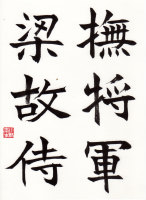 撫將軍
梁故侍